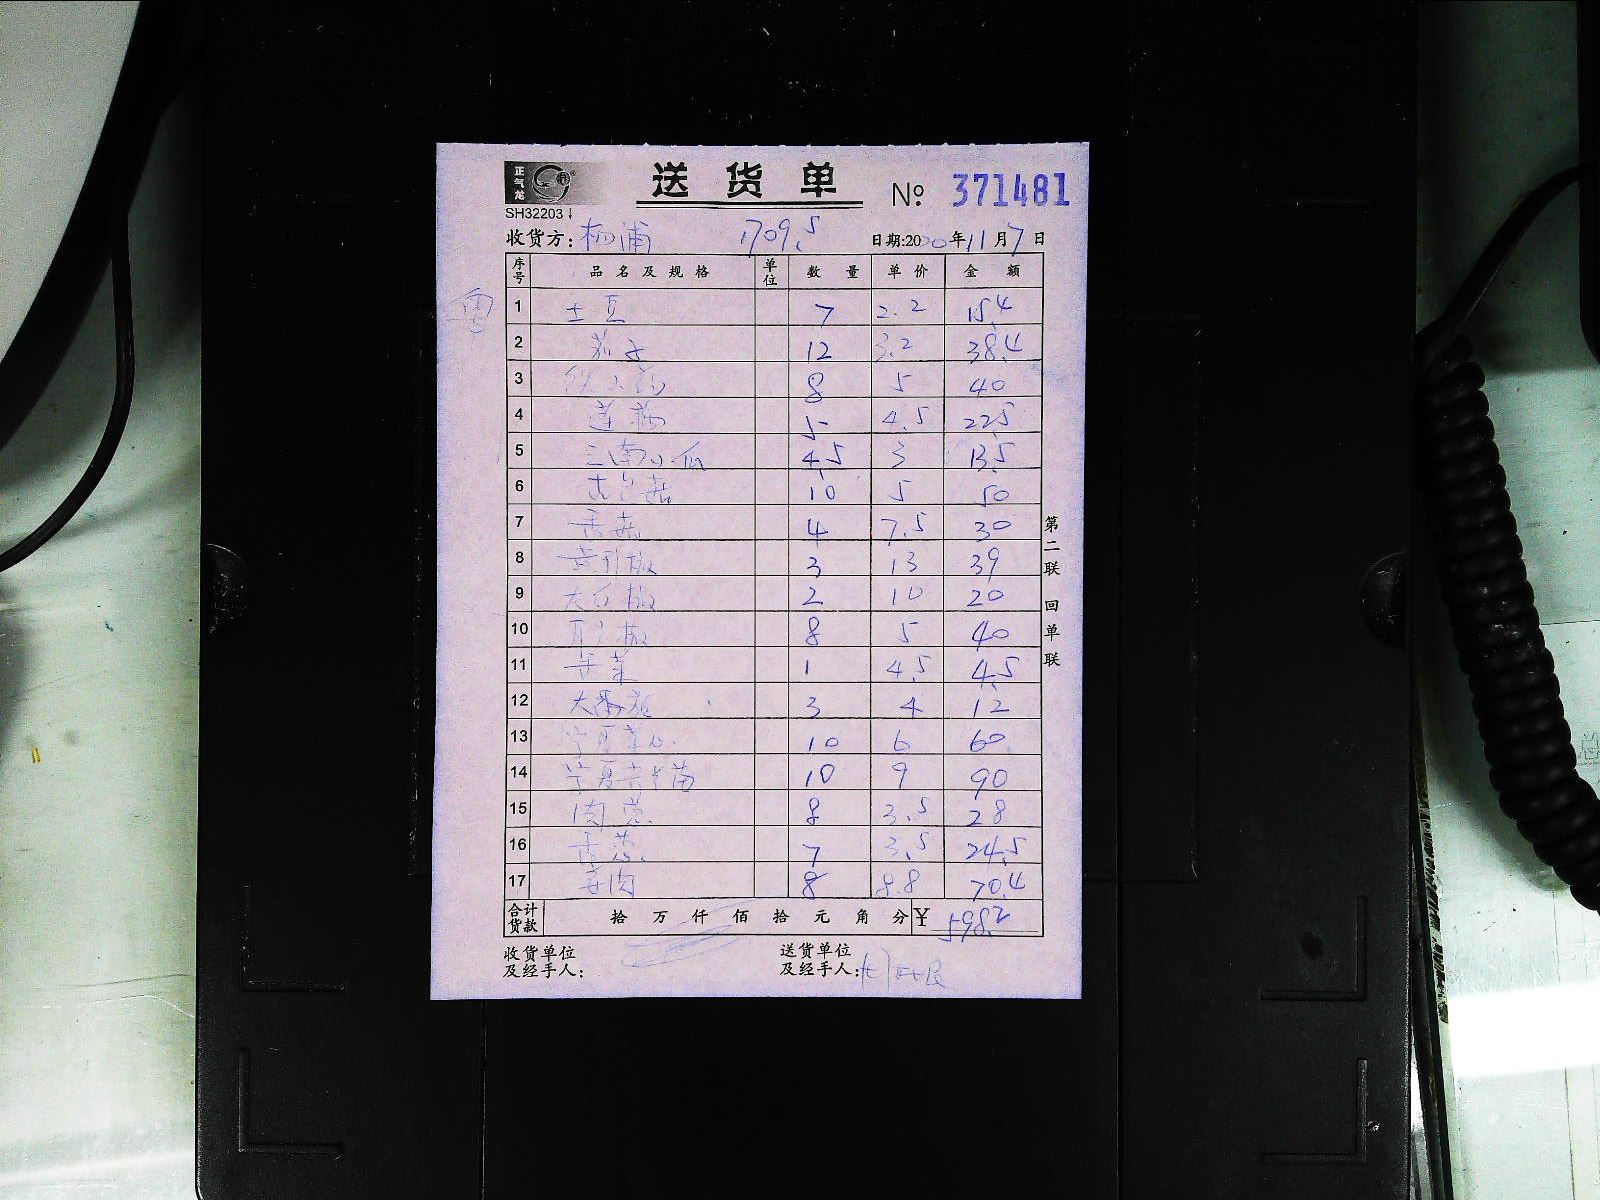 正气龙
送货单 № 371481
SH32203
收货方: 杨浦 1709.5 日期:2020年11月7日
序号 品名及规格 单位 数量 单价 金额
1 土豆 7 2.2 15.4
2 茄子 12 3.2 38.4
3 8 5 40
4 莲藕 5 4.5 22.5
5 4.5 3 13.5
6 10 5 50
7 4 7.5 30
8 3 13 39
9 大红椒 2 10 20
10 8 5 40
11 1 4.5 4.5
12 大番茄 3 4 12
13 宁夏菜心 10 6 60
14 宁夏 苗 10 9 90
15 肉葱 8 3.5 28
16 香葱 7 3.5 24.5
17 姜肉 8 8.8 70.4
合计货款 拾 万 仟 佰 拾 元 角 分 ¥ 598.2
收货单位及经手人:
送货单位及经手人:
第二联 回单联